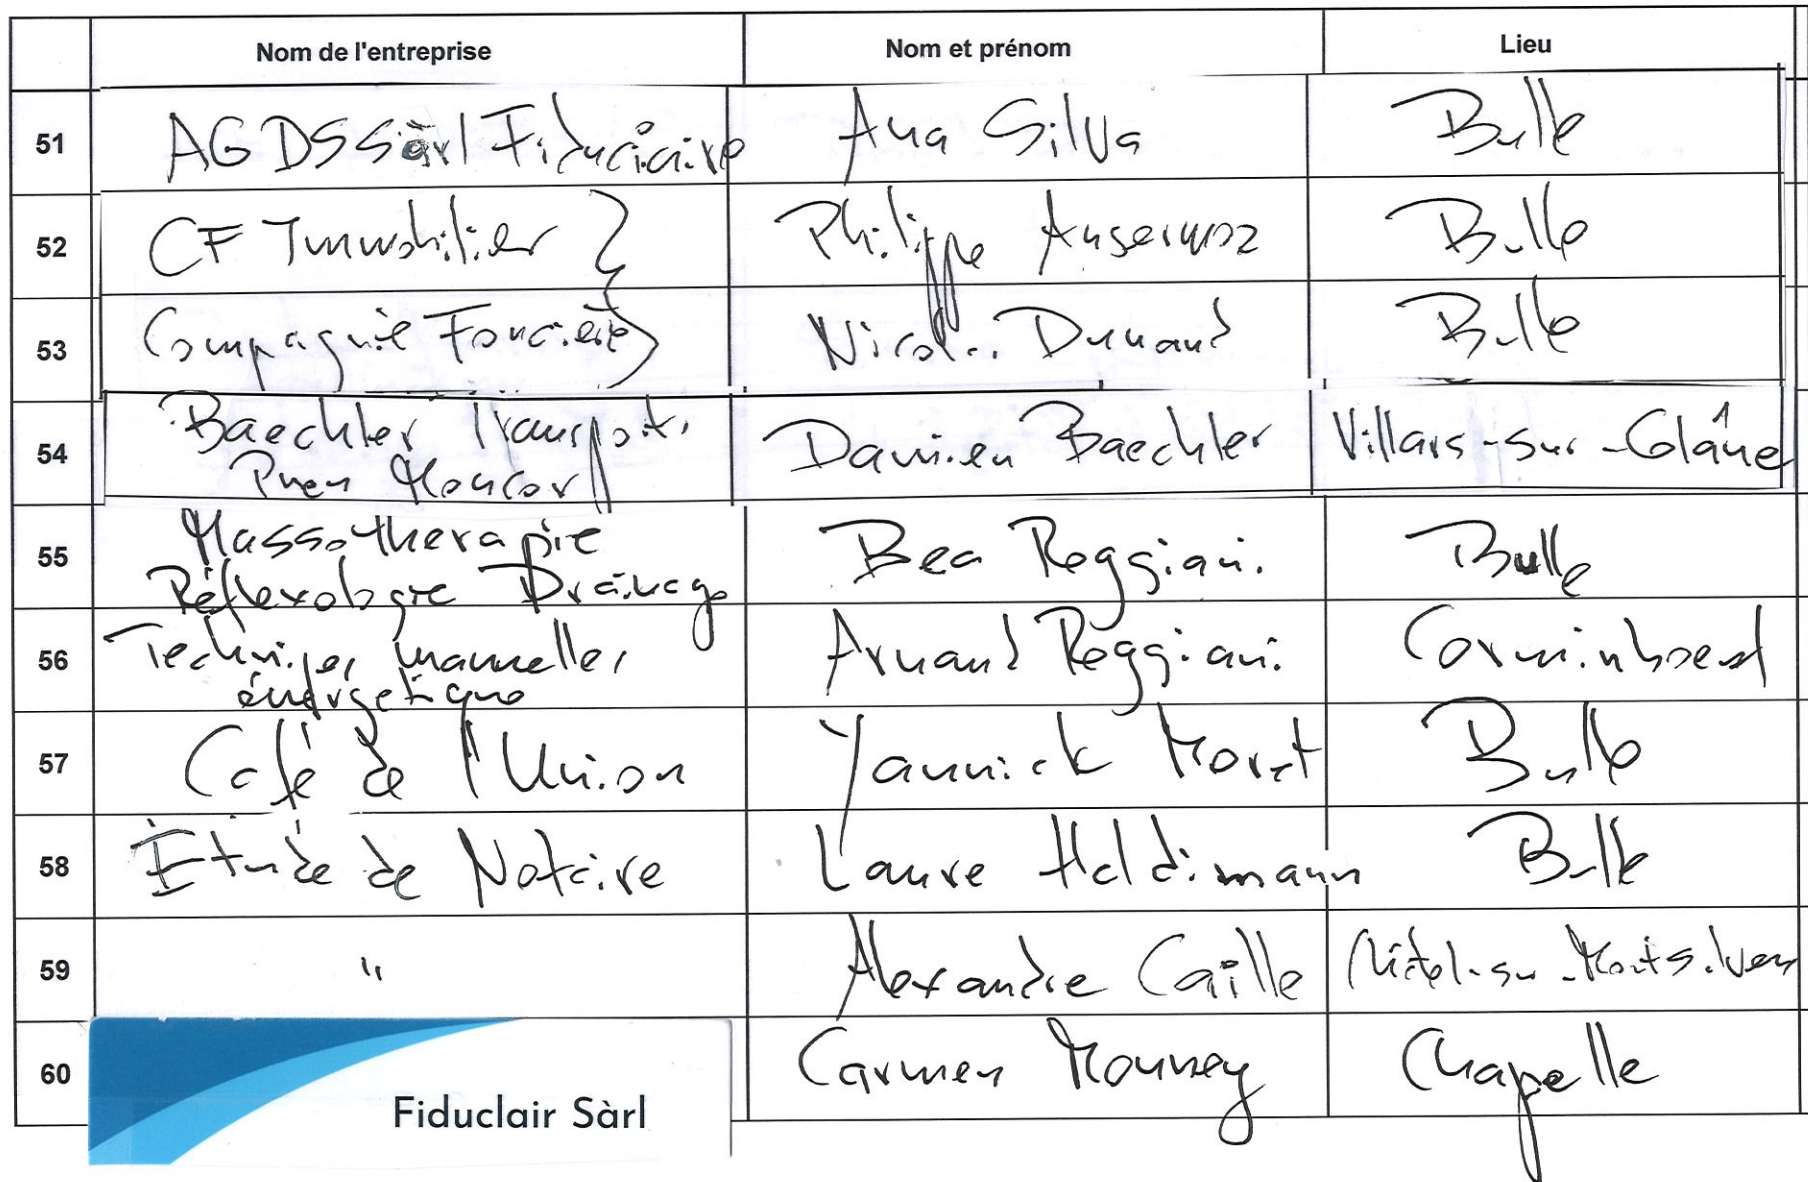 Nom de l'entreprise Nom et prénom Lieu
51 AGDS Sàrl Fiduciaire Ana Silva Bulle
52 CF Immobilier } Philippe Ansermoz Bulle
53 Compagnie Foncière } Nicolas Dunand Bulle
54 Baechler Transports Damien Baechler Villars-sur-Glâne
Pneu Moncor
55 Massothérapie Bea Reggiani Bulle
Réflexologie Drainage
56 Techniques manuelles Arnaud Reggiani Corminboeuf
énergétique
57 Café de l'Union Yannick Moret Bulle
58 Etude de Notaire Laure Haldimann Bulle
59 " Alexandre Caille Châtel-sur-Montsalvens
60 Fiduclair Sàrl Carmen Mounsey Chapelle